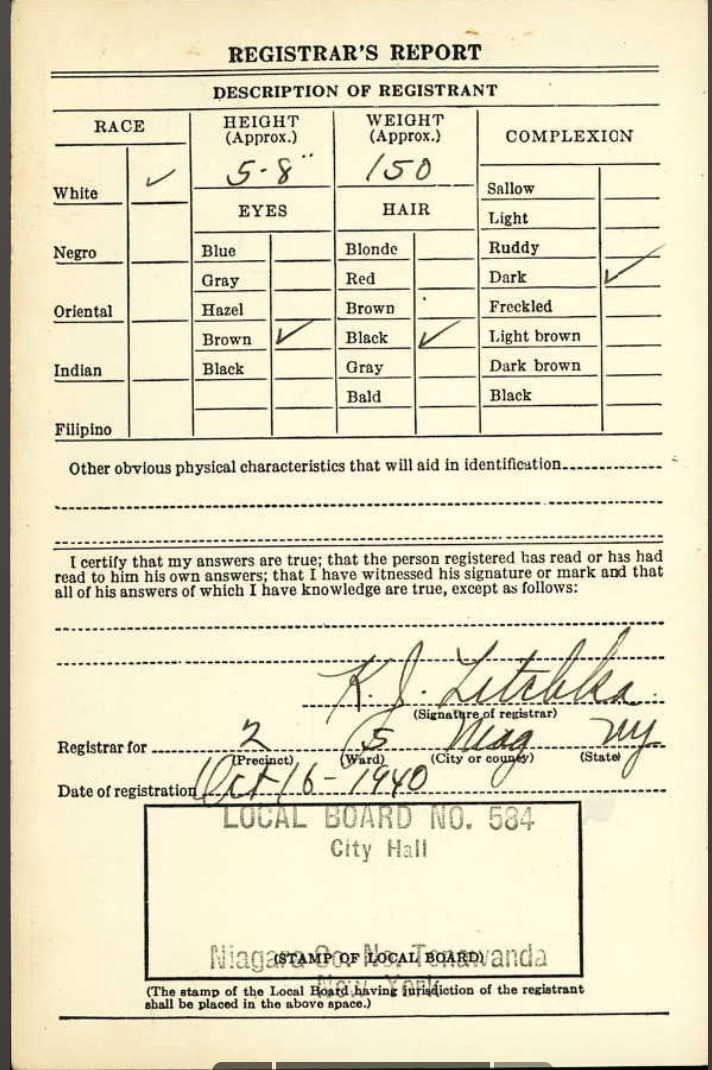 REGISTRAR'S REPORT
DESCRIPTION OF REGISTRANT
RACE
HEIGHT
(Approx.)
WEIGHT
(Approx.)
COMPLEXION
5-8"
150
White ✓
Negro
Oriental
Indian
Filipino
EYES
Blue
Gray
Hazel
Brown ✓
Black
HAIR
Blonde
Red
Brown
Black ✓
Gray
Bald
Sallow
Light
Ruddy
Dark ✓
Freckled
Light brown
Dark brown
Black
Other obvious physical characteristics that will aid in identification
I certify that my answers are true; that the person registered has read or has had
read to him his own answers; that I have witnessed his signature or mark and that
all of his answers of which I have knowledge are true, except as follows:
K. J.
(Signature of registrar)
Registrar for 2 5 Niag NY
(Precinct) (Ward) (City or county) (State)
Date of registration Oct 16-1940
LOCAL BOARD NO. 584
City Hall
Niagara Co. No. Tonawanda
(STAMP OF LOCAL BOARD)
New York
(The stamp of the Local Board having jurisdiction of the registrant
shall be placed in the above space.)